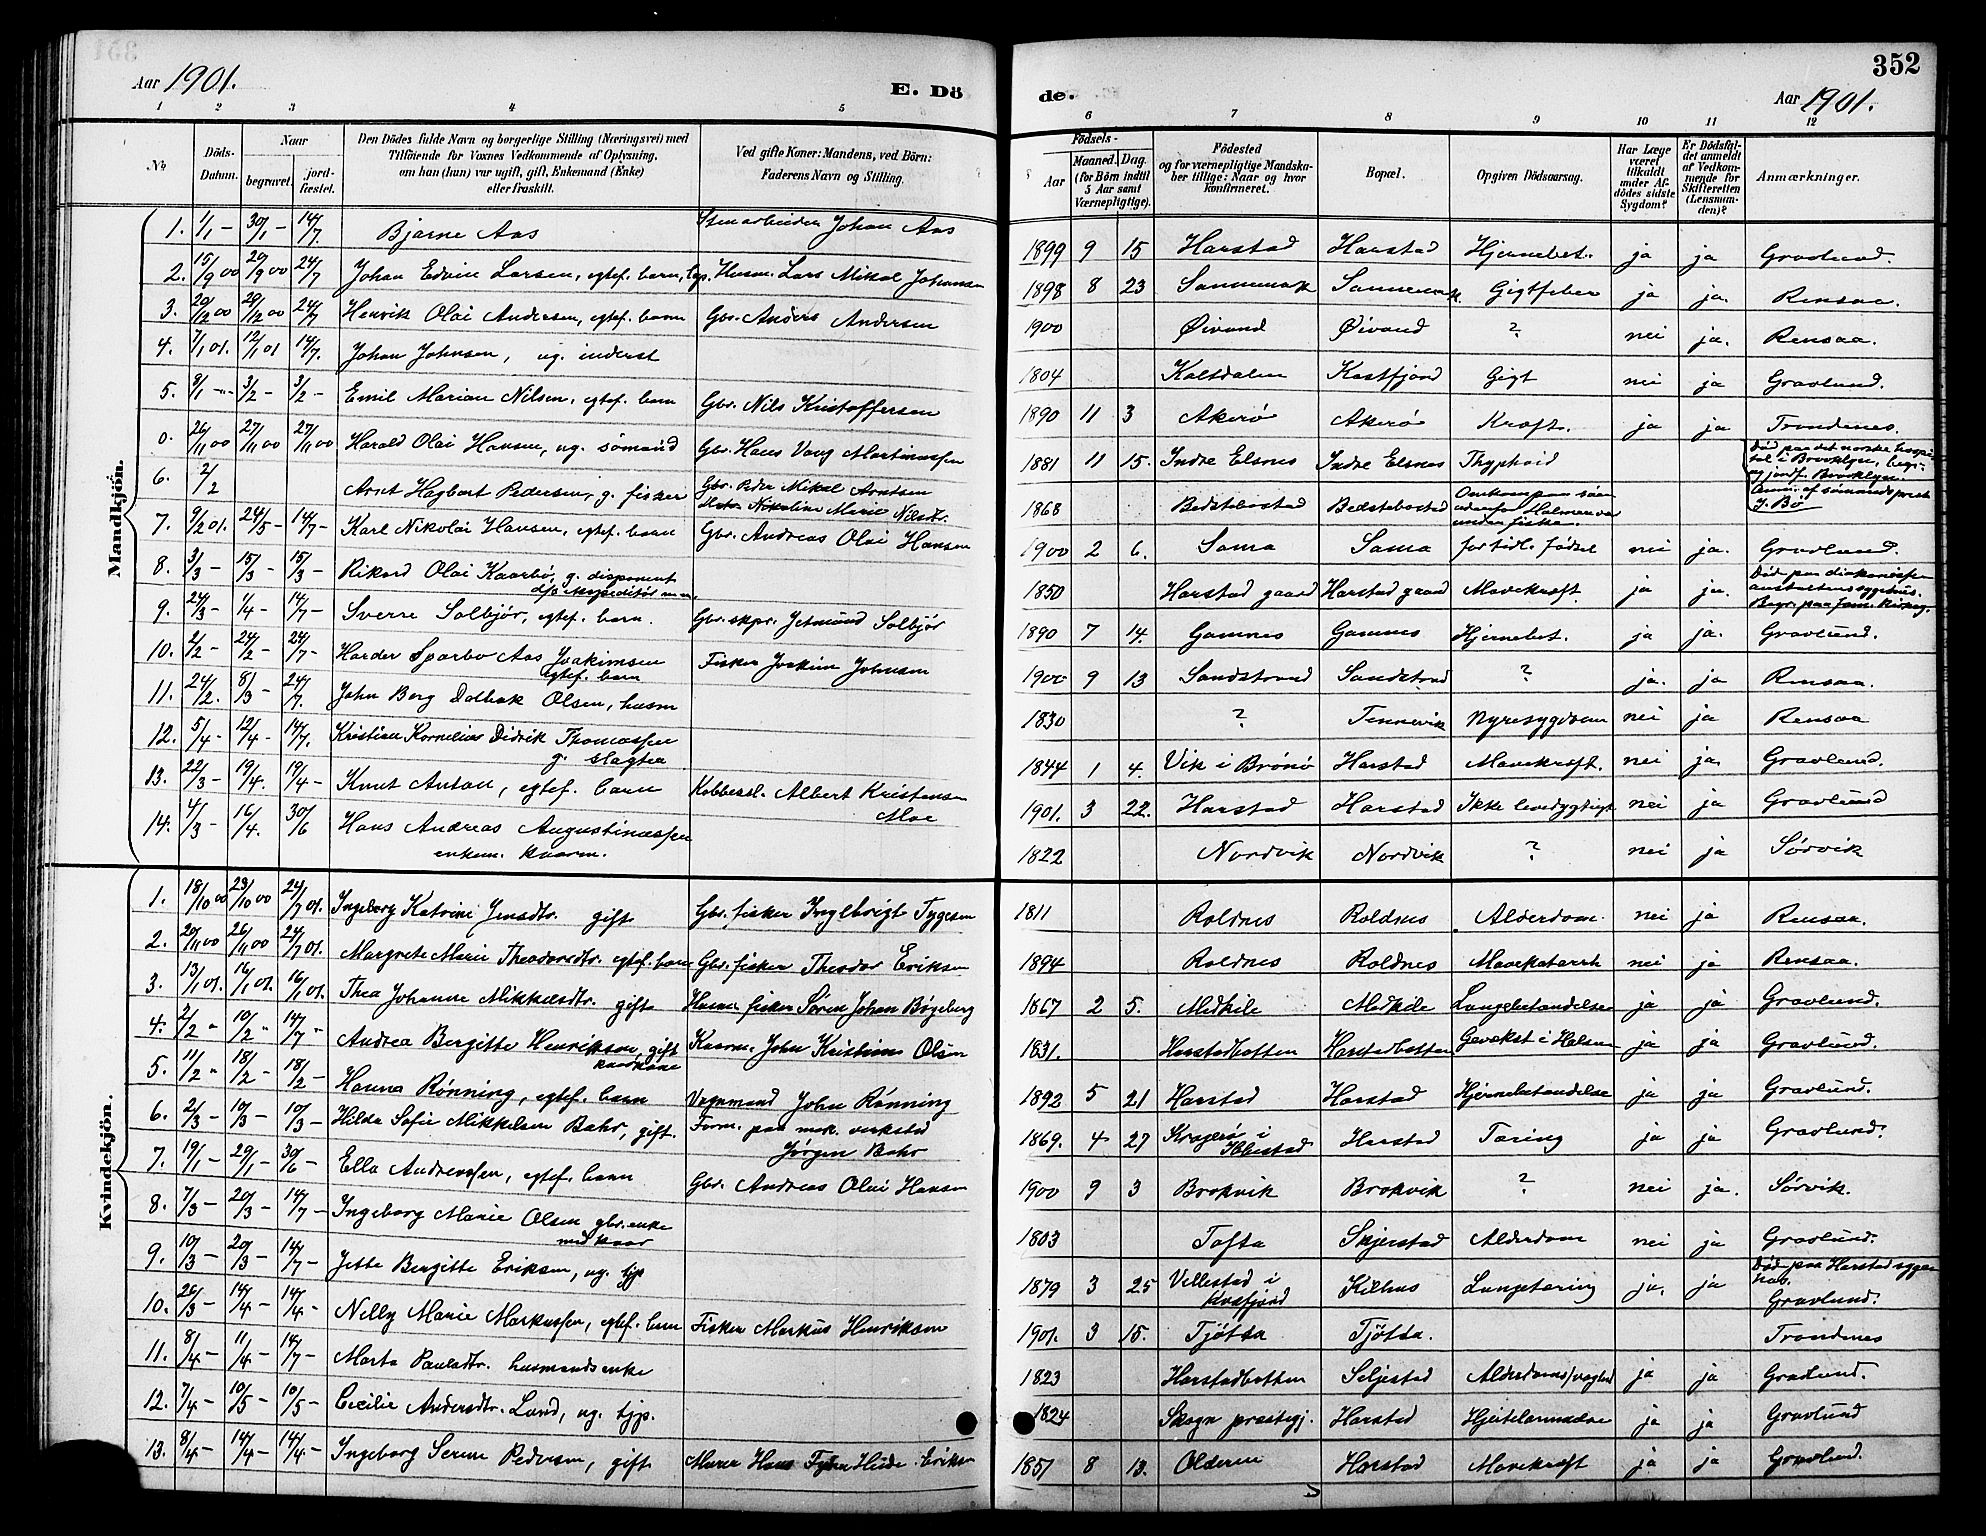 352
Aar 1901.
E. Dö
de.
Aar 1901.
1 2 3 4 5
6 7 8 9 10 11 12
Nr.
Döds-Datum.
Naar
begravet.
jord-fæstet.
Den Dödes fulde Navn og borgerlige Stilling (Næringsvei) med
Tilföiende for Voxnes Vedkommende af Oplysning,
om han (hun) var ugift, gift, Enkemand (Enke)
eller fraskilt.
Ved gifte Koner: Mandens, ved Börn:
Faderens Navn og Stilling.
Födsels-
Aar
Maaned. Dag.
(for Börn indtil
5 Aar samt
Værnepligtige).
Födested
og for værnepligtige Mandska-
ber tillige: Naar og hvor
konfirmeret.
Bopæl.
Opgiven Dödsaarsag.
Har Læge
været
tilkaldt
under Af-
dödes sidste
Sygdom?
Er Dödsfal-
det anmeldt
af Vedkom-
mende for
Skifteretten
(Lensman-
den)?
Anmærkninger.
Mandkjön.
1. 1/1 - 30/1 - 14/7. Bjarne Aas Stenarbeider Johan Aas 1899 9 15 Harstad Harstad Hjernebet. ja ja Gravlund.
2. 15/9 00 20/9 00 24/7 Johan Edvin Larsen, egtef. barn, Husm. Lars Mikal Johansen 1898 8 23 Sannemark Sannemark Gigtfeber ja ja. Rensaa.
3. 20/12 00 29/12 00 24/7 Henrik Olai Andersen, egtef. barn Gbr. Anders Andersen 1900 Øivand Øivand ? nei ja. Rensaa.
4. 7/1 01. 12/1 01 14/7. Johan Johnsen, ug. inderst 1804 Kaltdalen Kasfjord Gigt nei ja Gravlund.
5. 9/1 - 3/2 - 3/2 - Emil Marian Nilsen, egtef. barn Gbr. Nils Kristoffersen 1890 11 3 Akerø Akerø Kræft. ja ja Trondenes.
0. 26/11 00 27/11 00 27/11 00 Harald Olai Hansen, ug. sømand Gbr. Hans Vang Martinussen 1881 11 15. Indre Elsnes Indre Elsnes Thyphoid Død paa det norske hospi-
tal i Brooklyn, begr.
og jordf. Brooklyn.
Anm. af sømandsprest
J. Bø
6. 2/2 Arnt Hagbart Pedersen, g. fisker Gbr. Peder Mikal Arntsen
Nikoline Marie Nilsdtr. 1868 Bedstebostad Bedstebostad Omkom paa søen
udenfor
under fiske.
7. 9/2 01. 24/5 - 14/7 - Karl Nikolai Hansen, egtef. barn Gbr. Andreas Olai Hansen 1900 2 6. Sama Sama for tidl. fødsel nei ja. Gravlund.
8. 3/3 - 15/3 - 15/3 - Rikard Olai Kaarbø, g. disponent
d/s expeditør m.m. 1850 Harstad gaard Harstad gaard Mavekræft ja ja. Død paa diakonisse
anstaltens sygehus.
Begr. paa
9. 24/3 - 1/4 - 14/7 - Sverre Solbjør, egtef. barn. Gbr. skpr. Jetmund Solbjør 1890 7 14. Gamnes Gamnes Hjernebet. ja ja. Gravlund.
10. 2/2 - 24/2 - 24/7 - Harder Sparbo Aas Joakimsen
egtef. barn Fisker Joakim Johnsen 1900 9 13 Sandstrand Sandstrand ? ja. ja Rensaa.
11. 24/2. 8/3 - 24/7. John Berg Dalbak Olsen, husm 1830 ? Tennevik Nyresygdom nei ja Rensaa
12. 5/4 - 12/4 - 14/7. Kristian Kornelius Didrik Thomassen
g. slagter 1844 1 4. Vik i Brønø Harstad Mavekræft. nei ja. Gravlund.
13. 22/3 - 19/4. 19/4 - Knut Anton, egtef. barn Kobbersl. Albert Kristensen
Moe 1901. 3 22. Harstad Harstad Ikke levedygtigt nei ja Gravlund
14. 4/3 - 16/4. 30/6 Hans Andreas Augustinussen
enkem. kaarm. 1822 Nordvik Nordvik ? nei ja Sørvik
Kvindekjön.
1. 18/10 00 23/10 00 24/7 01. Ingeborg Katrine Jensdtr. gift Gbr. fisker Ingebrigt Tygesen 1811 Roldnes Roldnes Alderdom. nei ja Rensaa.
2. 20/11 00 26/11 00 24/7 01. Margrete Marie Theodorsdtr. egtef. barn Gbr. fisker Theodor Eriksen 1894 Roldnes Roldnes Mavekatarrh nei ja Rensaa.
3. 13/1 01. 16/1 01. 16/1 01. Thea Johanne Mikkelsdtr. gift Husm. fisker Søren Johan Bøgeberg 1867 2 5. Medkile Medkile Lungebetændelse ja ja Gravlund.
4. 2/2 " 10/2 " 14/7 " Andrea Bergitte Henriksen, gift
kaarkone Kaarm. John Kristians Olsen 1831. Harstadbotten Harstadbotten Gevækst i Halsen ja ja Gravlund.
5. 11/2 " 18/2 - 18/2 - Hanna Rønning, egtef. barn Vognmand John Rønning 1892 5 21 Harstad Harstad Hjernebetændelse ja ja Gravlund.
6. 2/3 - 10/3 - 10/3 - Hilda Sofie Mikkelsen Bahr, gift. Form. paa mek. verksted
Jørgen Bahr 1869. 4 27 Kragerø i
Ibbestad Harstad Tæring ja ja Gravlund.
7. 19/1 - 29/1 - 30/6 - Ella Andreassen, egtef. barn Gbr. Andreas Olai Hansen 1900 9 3 Brokvik Brokvik ? nei ja. Sørvik.
8. 7/3 - 20/3 - 14/7 - Ingeborg Marie Olsen gbr. enke
med kaar 1803 Tofta Skjerstad Alderdom nei ja Gravlund.
9. 10/3 - 20/3 - 14/7 - Jette Bergitte Eriksen, ug. tjp 1879 3 25 Vellestad i
Kvæfjord Kilhus Lungetæring ja. ja Død paa Harstad syge
hus.
Gravlund.
10. 26/3 - 14/4 - 14/4 - Nelly Marie Markussen, egtef. barn Fisker Markus Henriksen 1901. 3 15. Tjøtta Tjøtta. Trondenes
11. 8/4 - 11/4 - 14/7 - Marta Paulsdtr. husmandsenke 1823 Harstadbotten Seljestad ja ja Gravlund.
12. 7/4 - 10/5 - 10/5 - Cecilie Andersdtr. Lund, ug. tjp. 1824 Skogn prestegj. Harstad ja ja Gravlund
13. 8/4 - 14/4 - 14/4 - Ingeborg Serine Pedersen, gift Murer Hans Eriksen 1851 8 13. Olderen Harstad Mavekræft ja ja Gravlund.